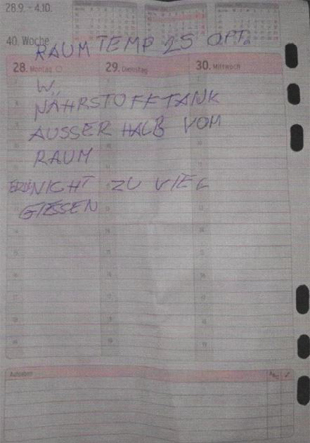 28.9. - 4.10.
40. Woche
RAUM TEMP 25 OPT.
28. Montag
29. Dienstag
30. Mittwoch
W.
NÄHRSTOFFTANK
AUSSERHALB VOM
RAUM
NICHT ZU VIEL
GIESSEN